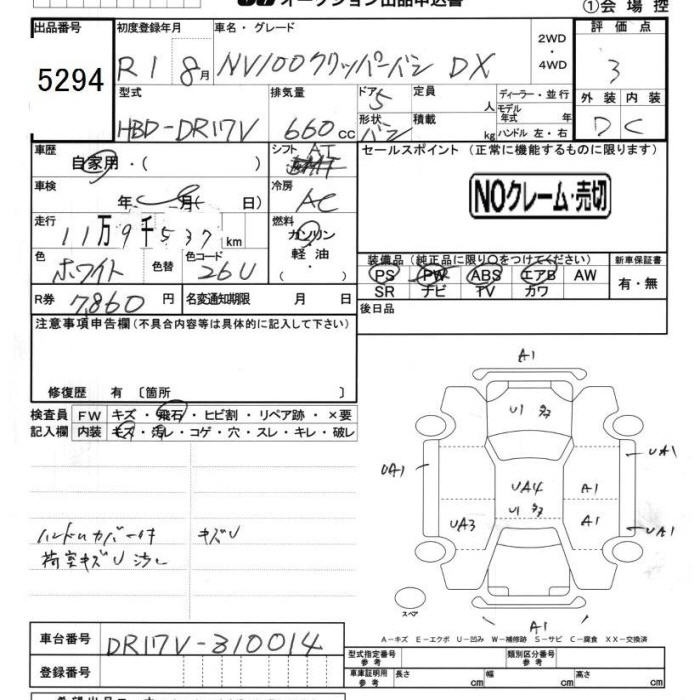 オークション出品申込書
①会場控
出品番号
5294
初度登録年月
R1 8月
車名・グレード
NV100クリッパーバン DX
2WD
・
4WD
評価点
3
型式
HBD-DR17V
排気量
660cc
ドア 5
形状 バン
定員 人
積載 kg
ディーラー・並行
モデル年式 年
ハンドル 左・右
外装 内装
D C
車歴
自家用・( )
シフト AT
セールスポイント (正常に機能するものに限ります)
NOクレーム・売切
車検
年 月( 日)
冷房
AC
走行
11万9千537km
燃料
ガソリン
・
軽油
色
ホワイト
色替
色コード
26U
装備品(純正品に限り○をつけてください)
PS PW ABS エアB AW
SR ナビ TV カワ
新車保証書
有・無
R券
7,860円
名変通知期限 月 日
後日品
注意事項申告欄 (不具合内容等は具体的に記入して下さい)
修復歴 有 〔箇所 〕
検査員
記入欄
FW キズ・飛石・ヒビ割・リペア跡・×要
内装 キズ・汚レ・コゲ・穴・スレ・キレ・破レ
ハンドルカバー付 キズU
荷室キズU 汚レ
A1
U1
UA1
UA1
UA4
A1
U1
UA3
A1
UA1
スペア
A1
A－キズ E－エクボ U－凹み W－補修跡 S－サビ C－腐食 XX－交換済
車台番号
DR17V-310014
登録番号
型式指定番号
参考
類別区分番号
参考
車庫証明用
参考
長さ cm
幅 cm
高さ cm